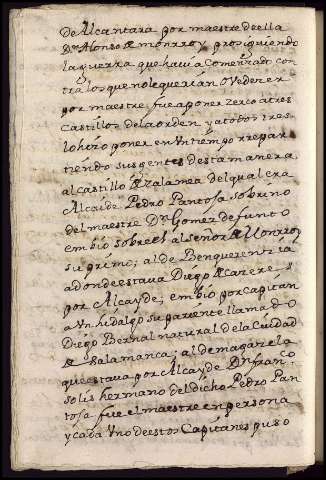 De Alcantara por maestre de ella
Dn Alonso de monrroy prosiguiendo
la guerra que havia Comenzado con
tra los que no le querian Ovedezer
por maestre fue a poner zerco a tres
Castillos de la orden y a todos tres
lo hizo poner en Un tiempo rrepar
tiendo sus gentes desta manera
al castillo de zalamea del qual era
Alcaide Pedro Pantoja sobrino
del maestre Dn Gomez defunto
embio sobre el al señor de Monrroy
su primo; al de Benquerencia
a donde estava Diego de Cazeres
por Alcayde, embio por Capitan
a Un hidalgo su pariente llamado
Diego Bernal natural de la Ciudad
de Salamanca; al de magazela
que estava por Alcayde Dn franco
solis hermano del dicho Pedro Pan
toja fue el maestre en persona
y cada Uno destos Capitanes puso